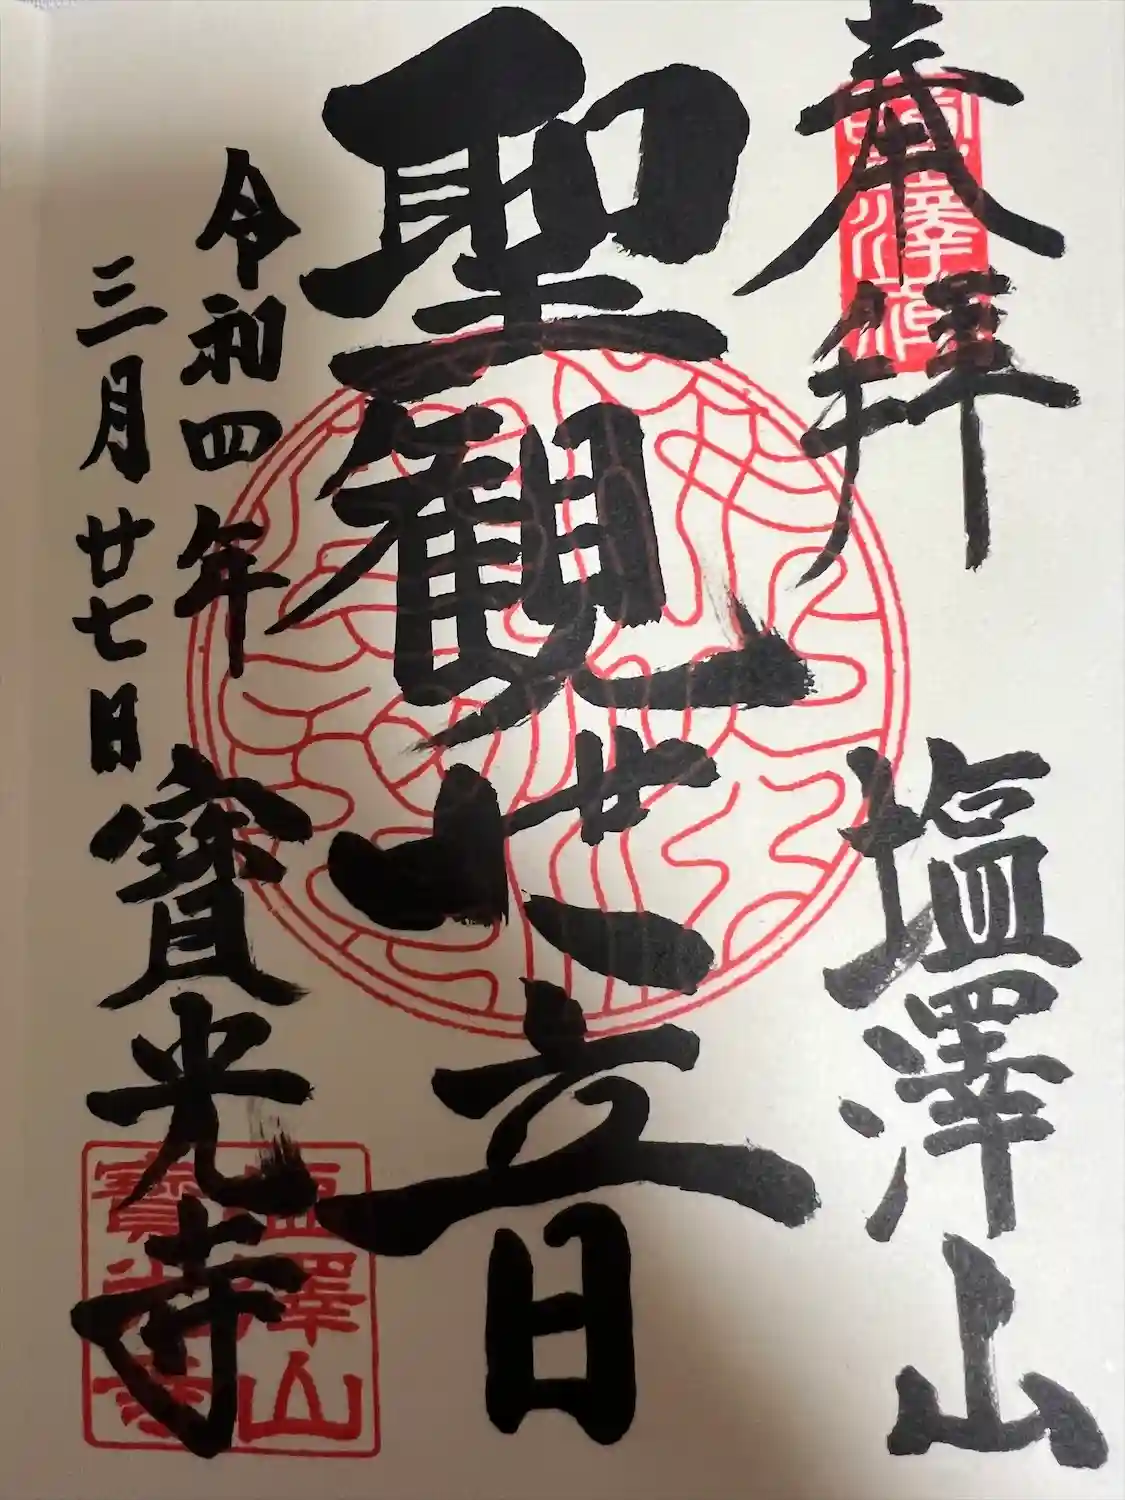 奉拝
塩澤山
聖観世音
令和四年
三月廿七日
寶光寺
塩澤山
寶光寺